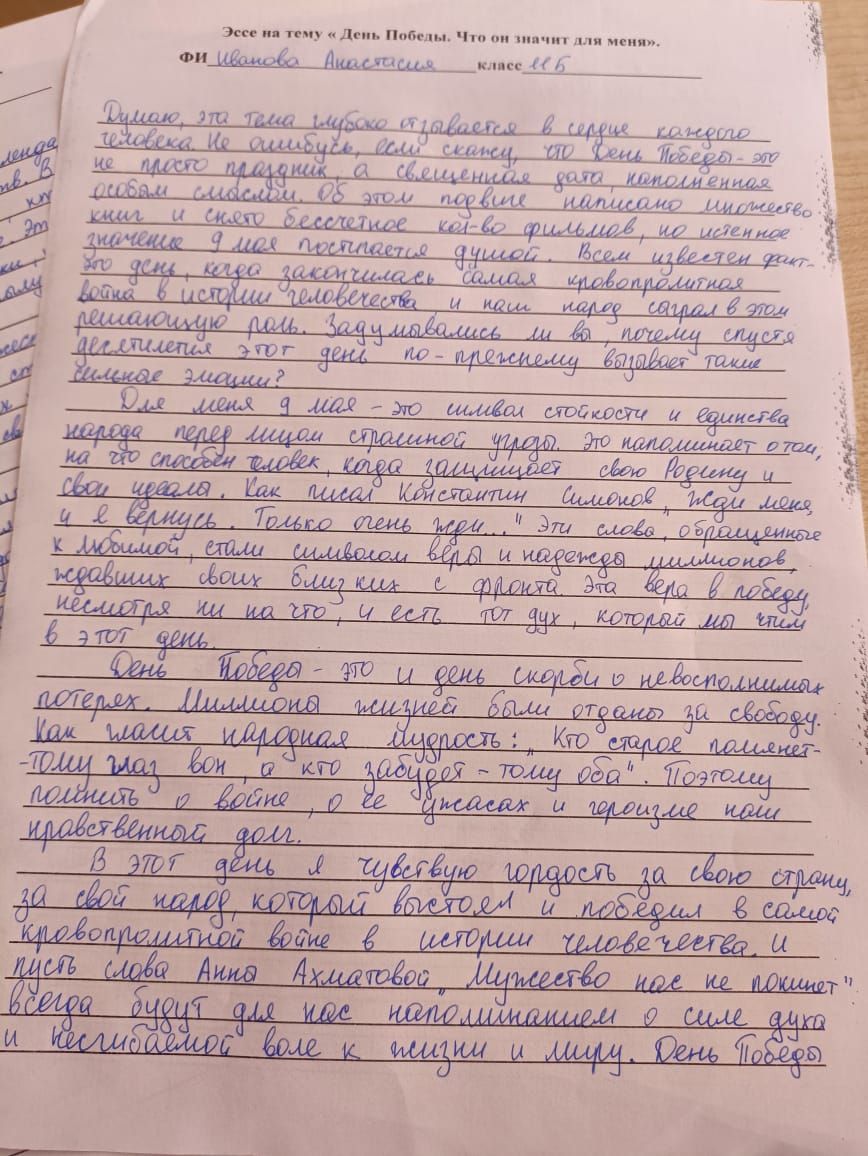 Эссе на тему « День Победы. Что он значит для меня».
ФИ Иванова Анастасия класс 11 Б
Думаю, эта тема глубоко отзывается в сердце каждого
человека. Не ошибусь, если скажу, что День Победы - это
не просто праздник, а священная дата, наполненная
особым смыслом. Об этом подвиге написано множество
книг и снято бессчетное кол-во фильмов, но истенное
значение 9 мая постигается душой. Всем известен факт-
это день, когда закончилась самая кровопролитная
война в истории человечества, и наш народ сыграл в этом
решающую роль. Задумывались ли вы, почему спустя
десятилетия этот день по-прежнему вызывает такие
сильные эмоции?
Для меня 9 мая - это символ стойкости и единства
народа перед лицом страшной угрозы. Это напоминает о том,
на что способен человек, когда защищает свою Родину и
свои идеалы. Как писал Константин Симонов „Жди меня,
и я вернусь. Только очень жди..." Эти слова, обращенные
к любимой, стали символом веры и надежды миллионов,
ждавших своих близких с фронта. Эта вера в победу,
несмотря ни на что, и есть тот дух, который мы чтим
в этот день.
День Победы - это и день скорби о невосполнимых
потерях. Миллионы жизней были отданы за свободу.
Как гласит народная мудрость: „Кто старое помянет-
-тому глаз вон, а кто забудет - тому оба". Поэтому
помнить о войне, о ее ужасах и героизме наш
нравственный долг.
В этот день я чувствую гордость за свою страну,
за свой народ, который выстоял и победил в самой
кровопролитной войне в истории человечества. И
пусть слова Анны Ахматовой „Мужество нас не покинет"
всегда будут для нас напоминанием о силе духа
и несгибаемой воле к жизни и миру. День Победы